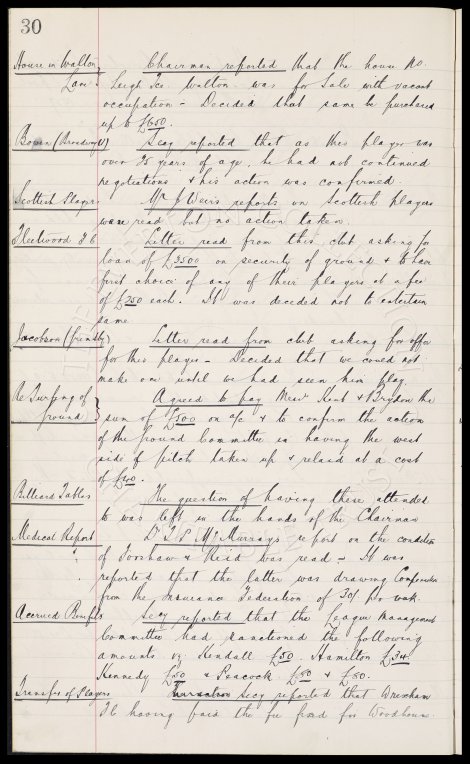 30
House in Walton Chairman reported that the house No.
Lane Leigh Ice Walton was for Sale with vacant
occupation - Decided that same be purchased
up to £650.
Bowen (Broadway) Secy reported that as this player was
over 25 years of age, he had not continued
negotiations & his action was confirmed.
Scottish Players Mr J Weirs reports on Scottish players
were read but no action taken.
Fleetwood F C Letter read from this club asking for
loan of £3500 on security of ground & to have
first choice of any of their players at a fee
of £250 each. It was decided not to entertain
same
Jacobson (Grimsby) Letter read from club asking for offer
for this player - Decided that we could not
make one until we had seen him play.
Re Turfing of Agreed to pay Messrs Kent & Brydon the
ground sum of £500 on a/c & to confirm the action
of the Ground Committee in having the west
side of pitch taken up & relaid at a cost
of
Billiard Tables The question of having these attended
to was left in the hands of the Chairman
Medical Report Dr T. P. McMurrays report on the condition
of Forshaw & Reid was read - It was
reported that the latter was drawing Compensation
from the Insurance Federation of 30/ per week.
Accrued Benefits Secy reported that the League Management
Committee had sanctioned the following
amounts vz Kendall £50. Hamilton
Kennedy £50 & Peacock & £50.
Transfer of Players Secy reported that Wrexham
FC having paid the fee fixed for Woodhouse